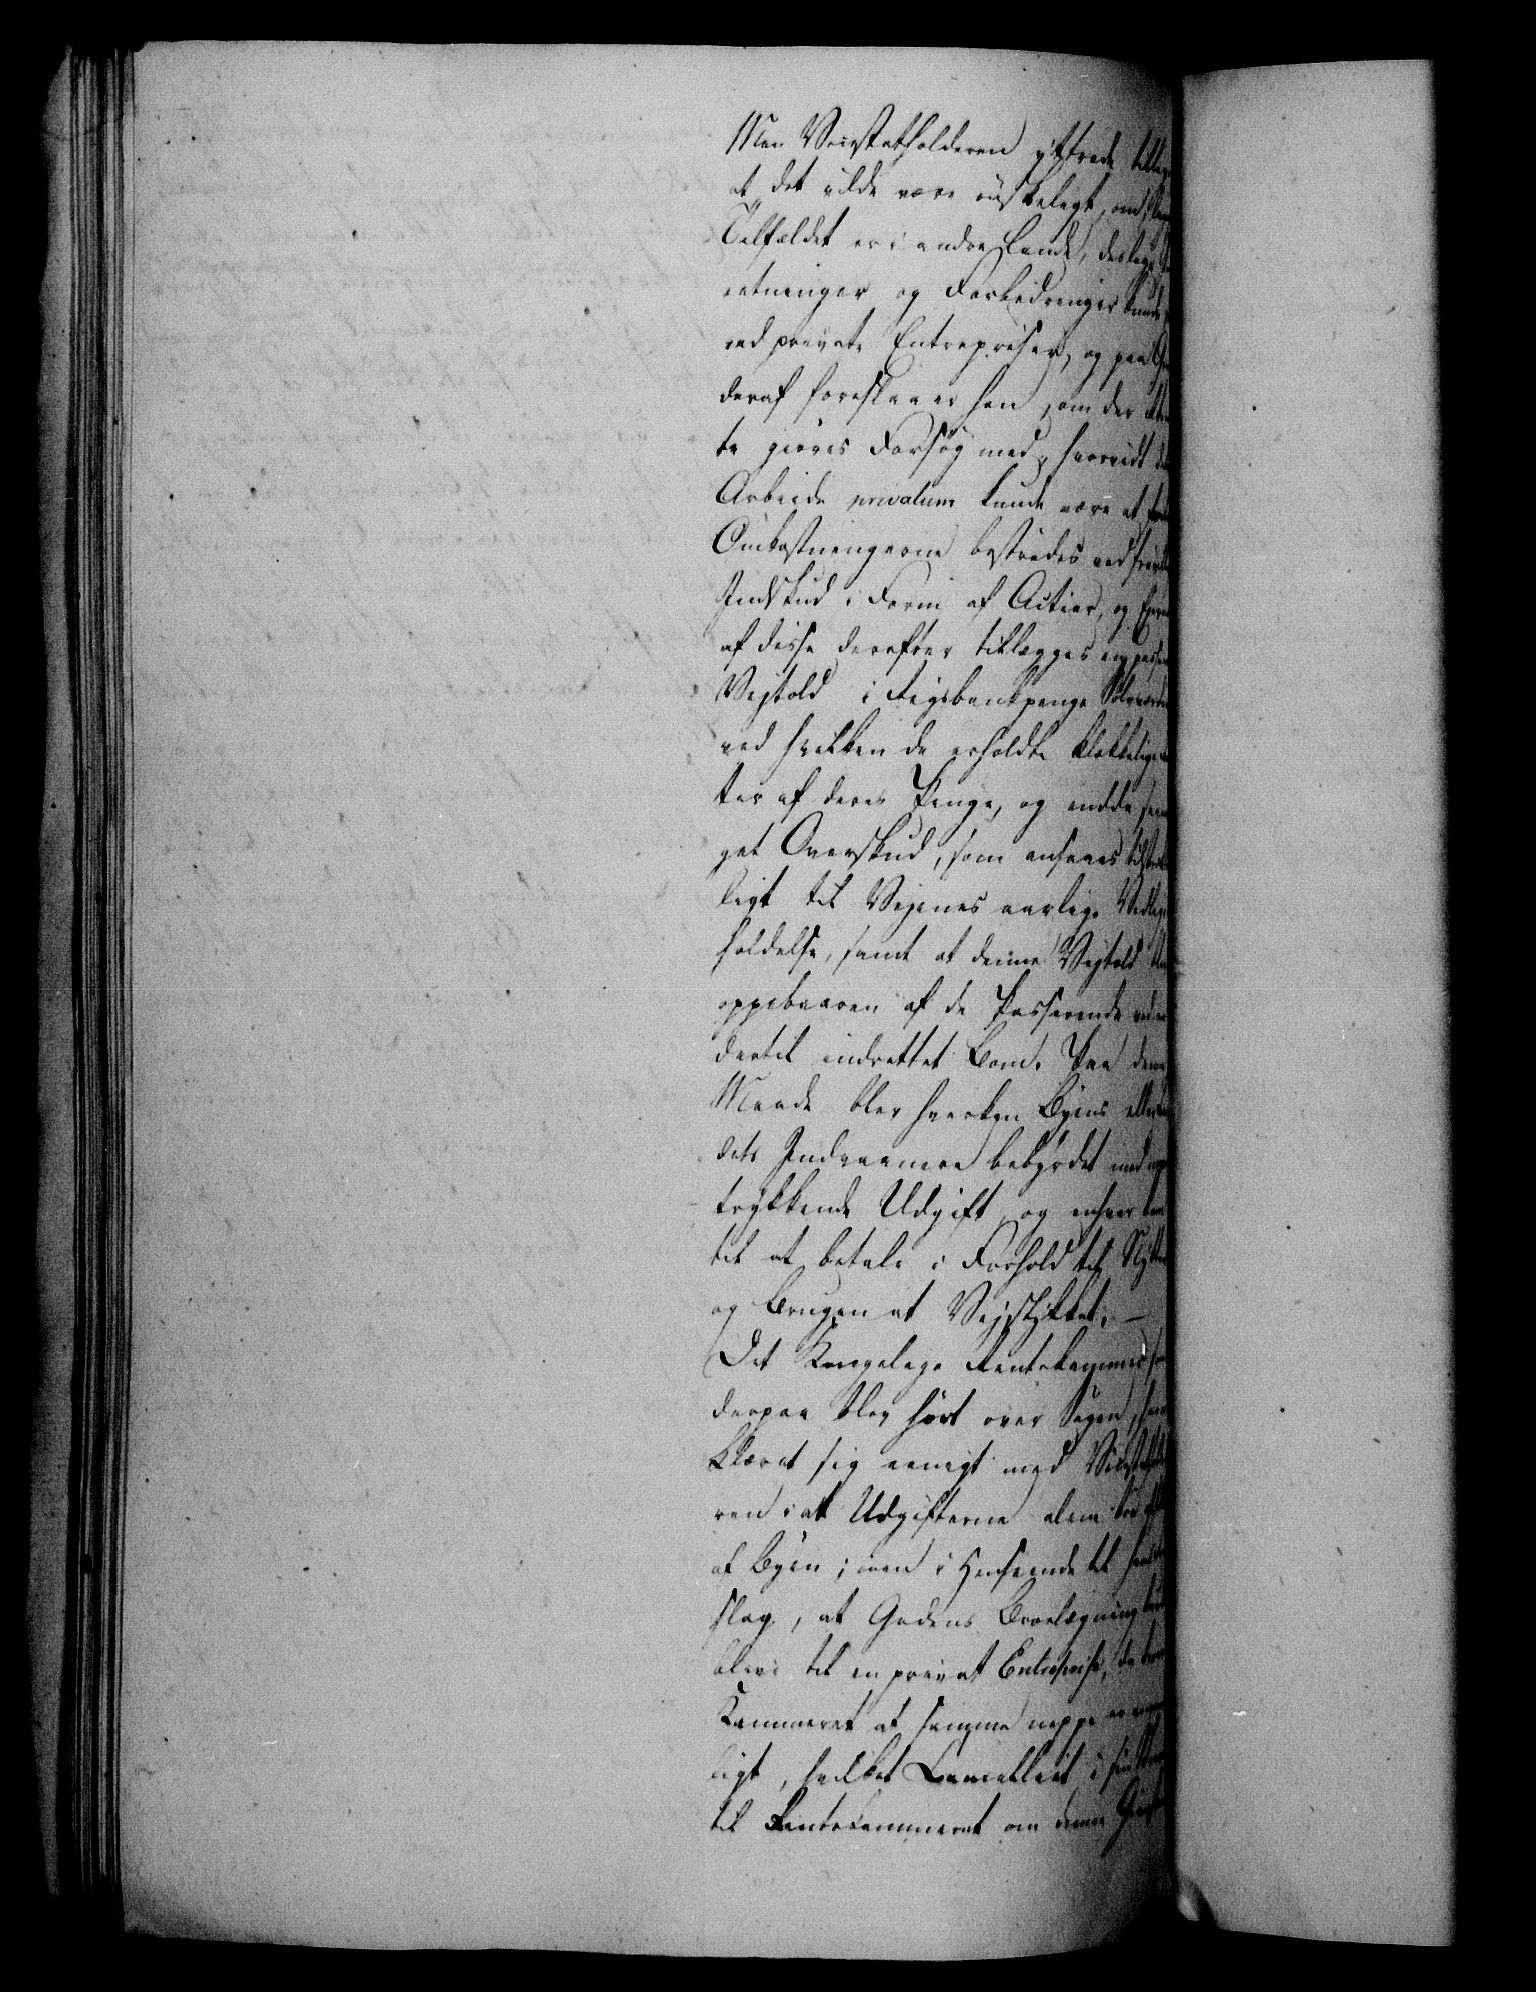 Men Viceststatholderen yttrede tillige
at det vilde være ønskeligt, om, som
Tilfældet er i andre Lande, deslige
retninger og Forbedringer kunde
ved private Entrepriser, og paa
deraf foreslaaer han, om der
te giøres Forsøg med, hvorvidt
Arbeide privatum kunde være at
Omkostningerne bestrides ved
Indskud i Form af Actier, og
af disse derefter tillægges en
Vejtold i Rigsbankpenge Sølvværdie
ved hvilken de erholdte
ter af deres Penge, og endda
get Overskud, som ansaaes
ligt til Vejenes aarlige Vedlige
holdelse, samt at denne Vejtold
oppebaaren af de Passerende ved
dertil indrettet Bom. Paa denne
Maade blev hverken Byens eller
dets Indvaanere bebyrdet med
trykkende Udgift, og enhver
til at betale i Forhold til Nytten
og Brugen af Vejstykket. —
Det Kongelige Rentekammer,
derpaa blev hørt over Sagen,
klæret sig eenigt med
ren i at Udgifterne alene bør
af Byen; men i Henseende til
slag, at Gadens Broelægning
blive til en privat Entreprise,
Kammeret at samme neppe er
ligt, hvilket Cancelliet i sin
til Rentekammeret om denne